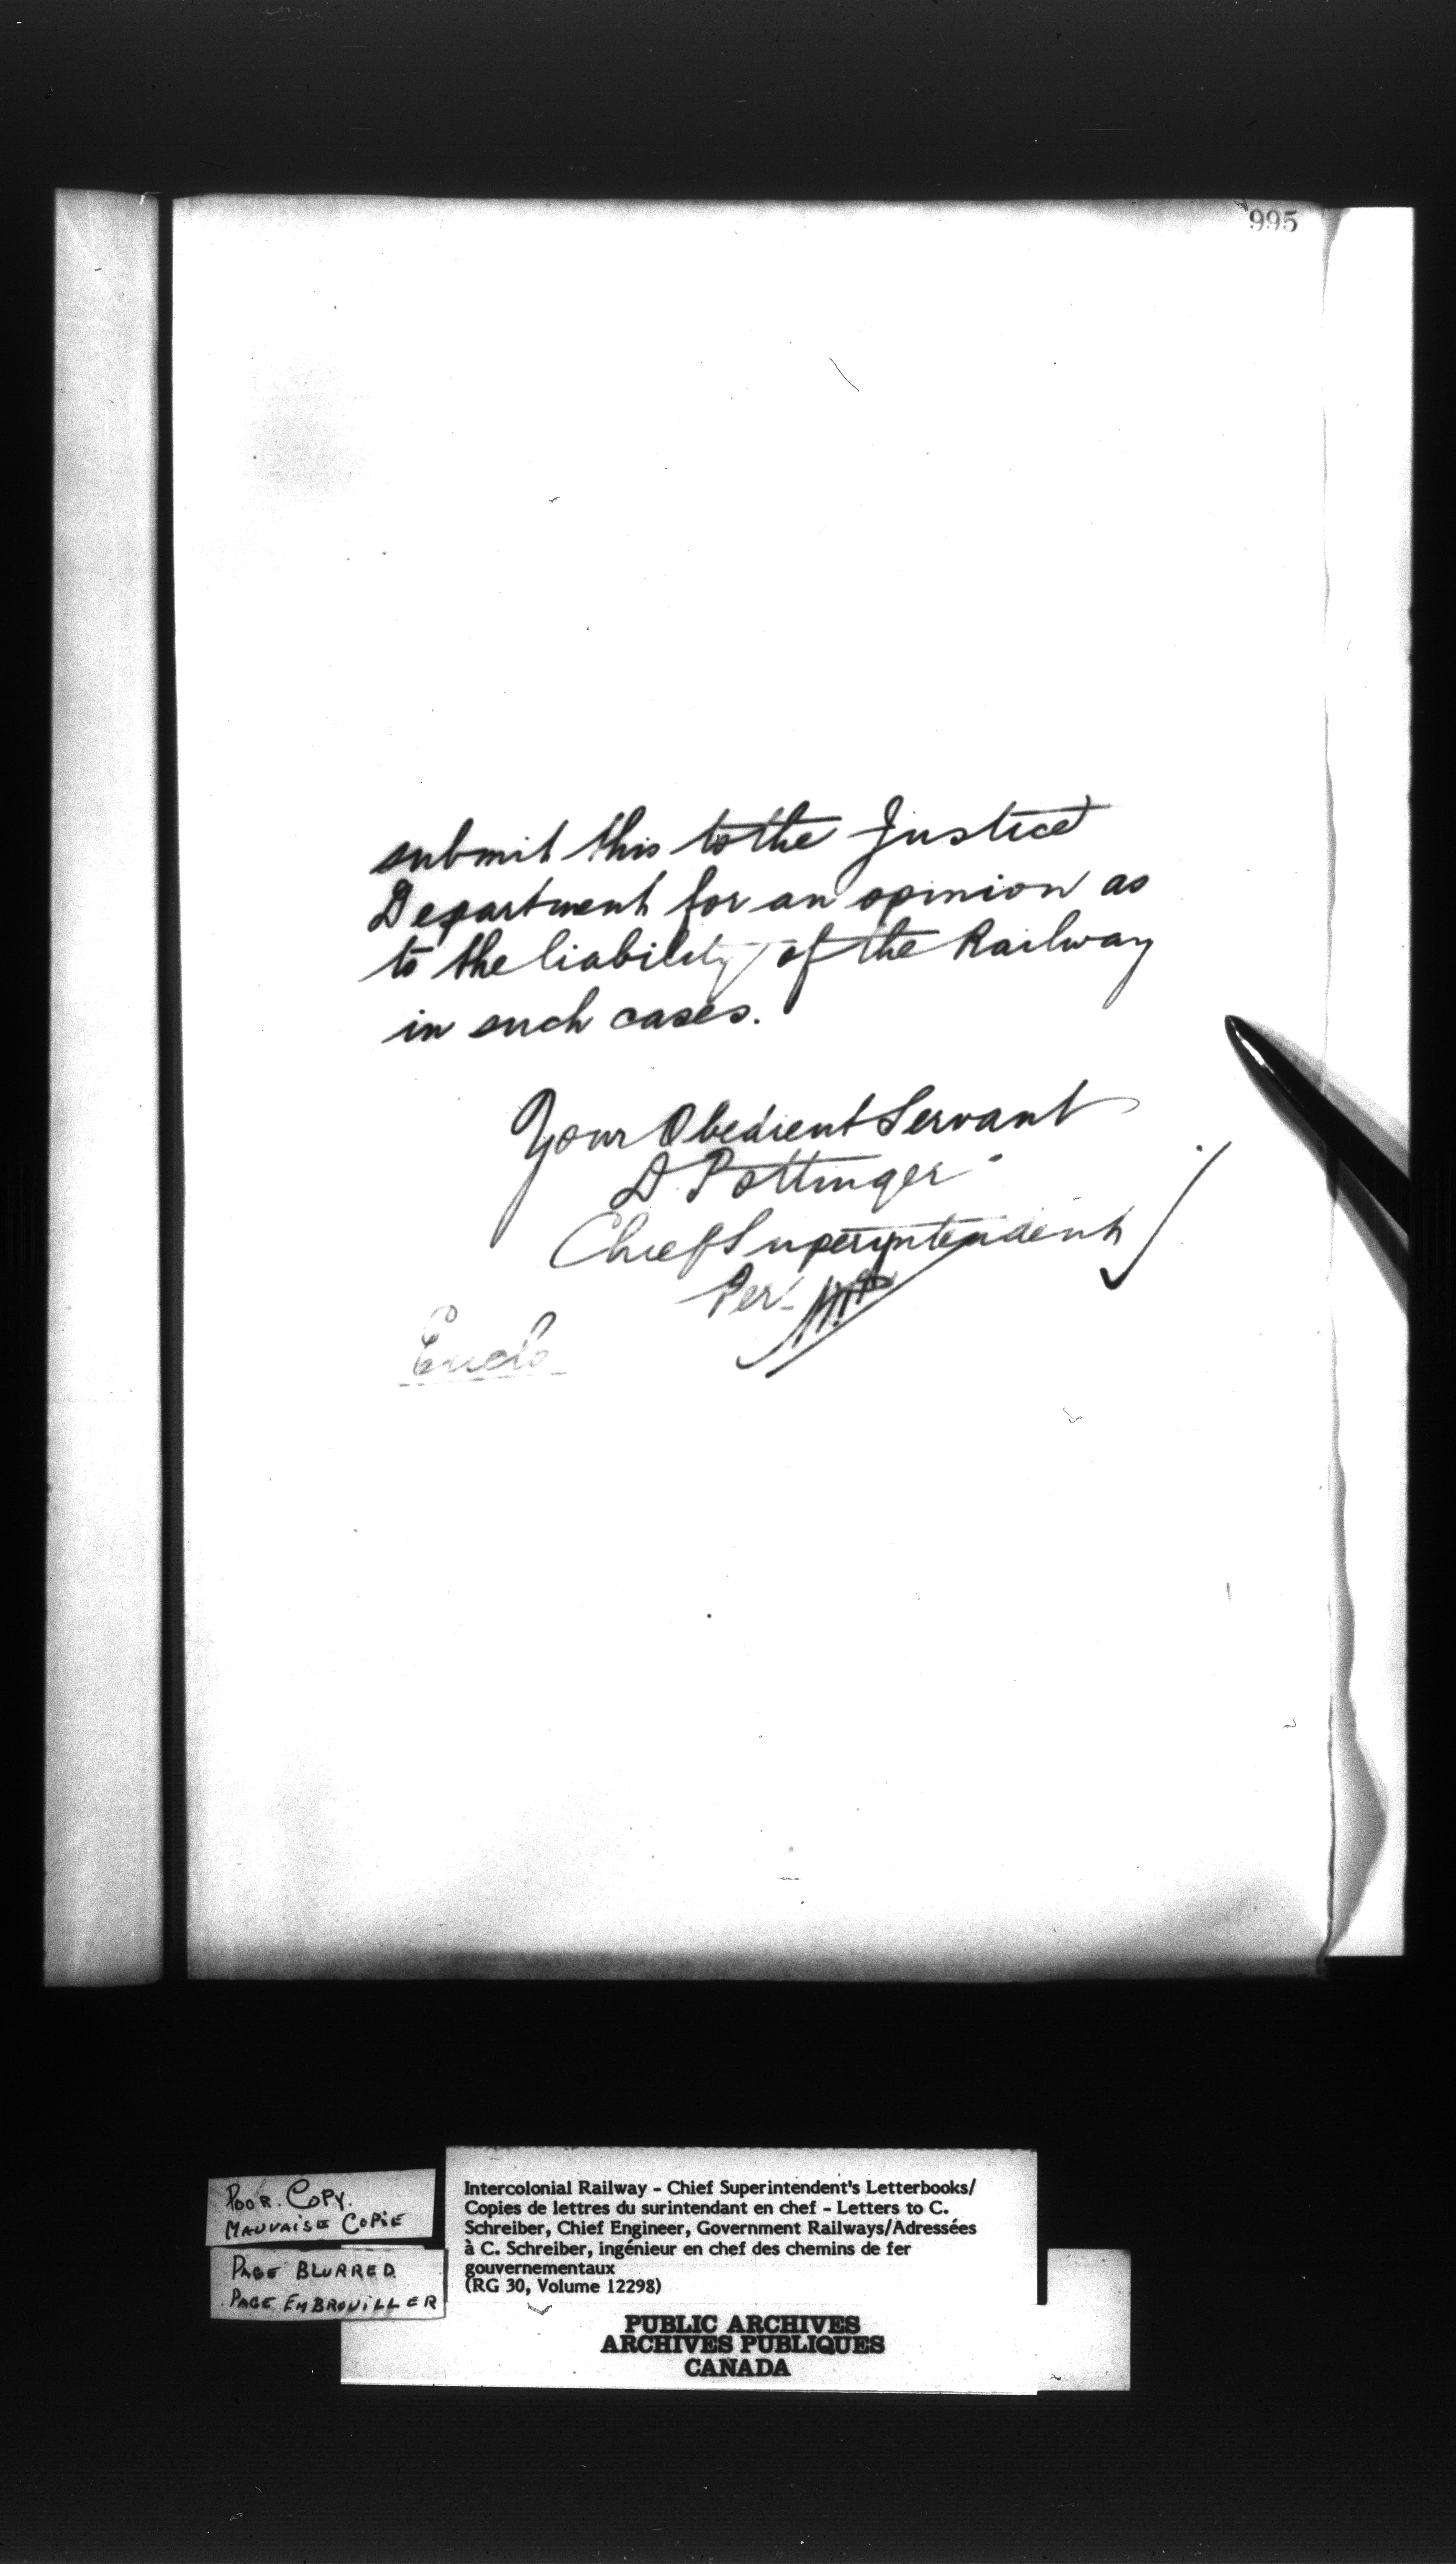 995
submit this to the Justice
Department for an opinion as
to the liability of the Railway
in such cases.
Your Obedient Servant
D. Pottinger
Chief Superintendent
Per
Enclo
POOR COPY.
MAUVAISE COPIE
PAGE BLURRED
PAGE EMBROUILLER
Intercolonial Railway - Chief Superintendent's Letterbooks/
Copies de lettres du surintendant en chef - Letters to C.
Schreiber, Chief Engineer, Government Railways/Adressées
à C. Schreiber, ingénieur en chef des chemins de fer
gouvernementaux
(RG 30, Volume 12298)
PUBLIC ARCHIVES
ARCHIVES PUBLIQUES
CANADA